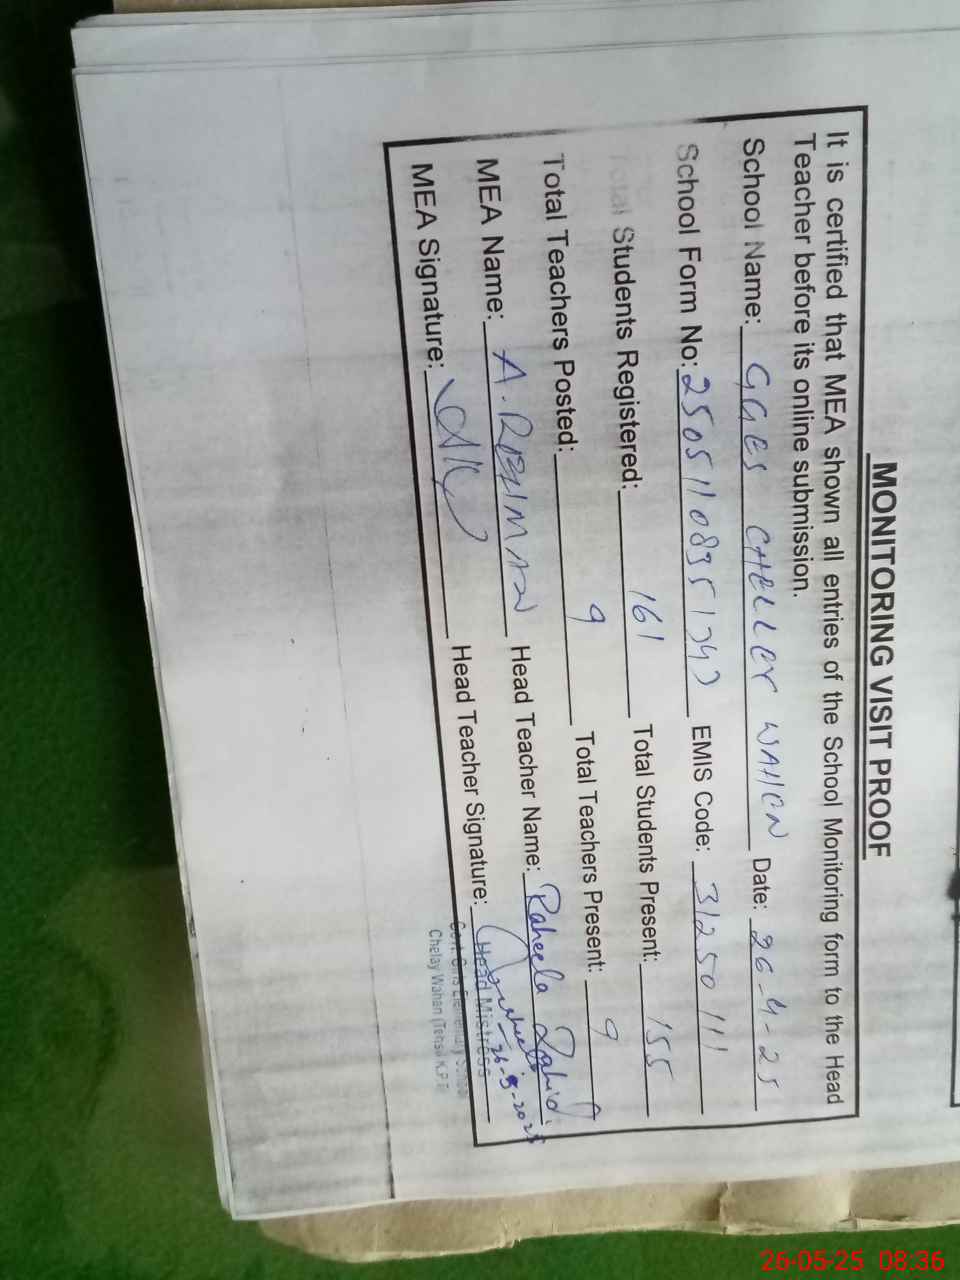 MONITORING VISIT PROOF
It is certified that MEA shown all entries of the School Monitoring form to the Head
Teacher before its online submission.
School Name: GGES CHELLEY WAHEN Date: 26-4-25
School Form No: EMIS Code: 31250111
Total Students Registered: 161 Total Students Present: 155
Total Teachers Posted: 9 Total Teachers Present: 9
MEA Name: A. REHMAN Head Teacher Name: Raheela Zahid
MEA Signature: Head Teacher Signature:
26-5-2025
Head Mistress
Govt. Girls Elementary School
Chelay Wahan (Tehsil K.P.T)
26-05-25 08:36